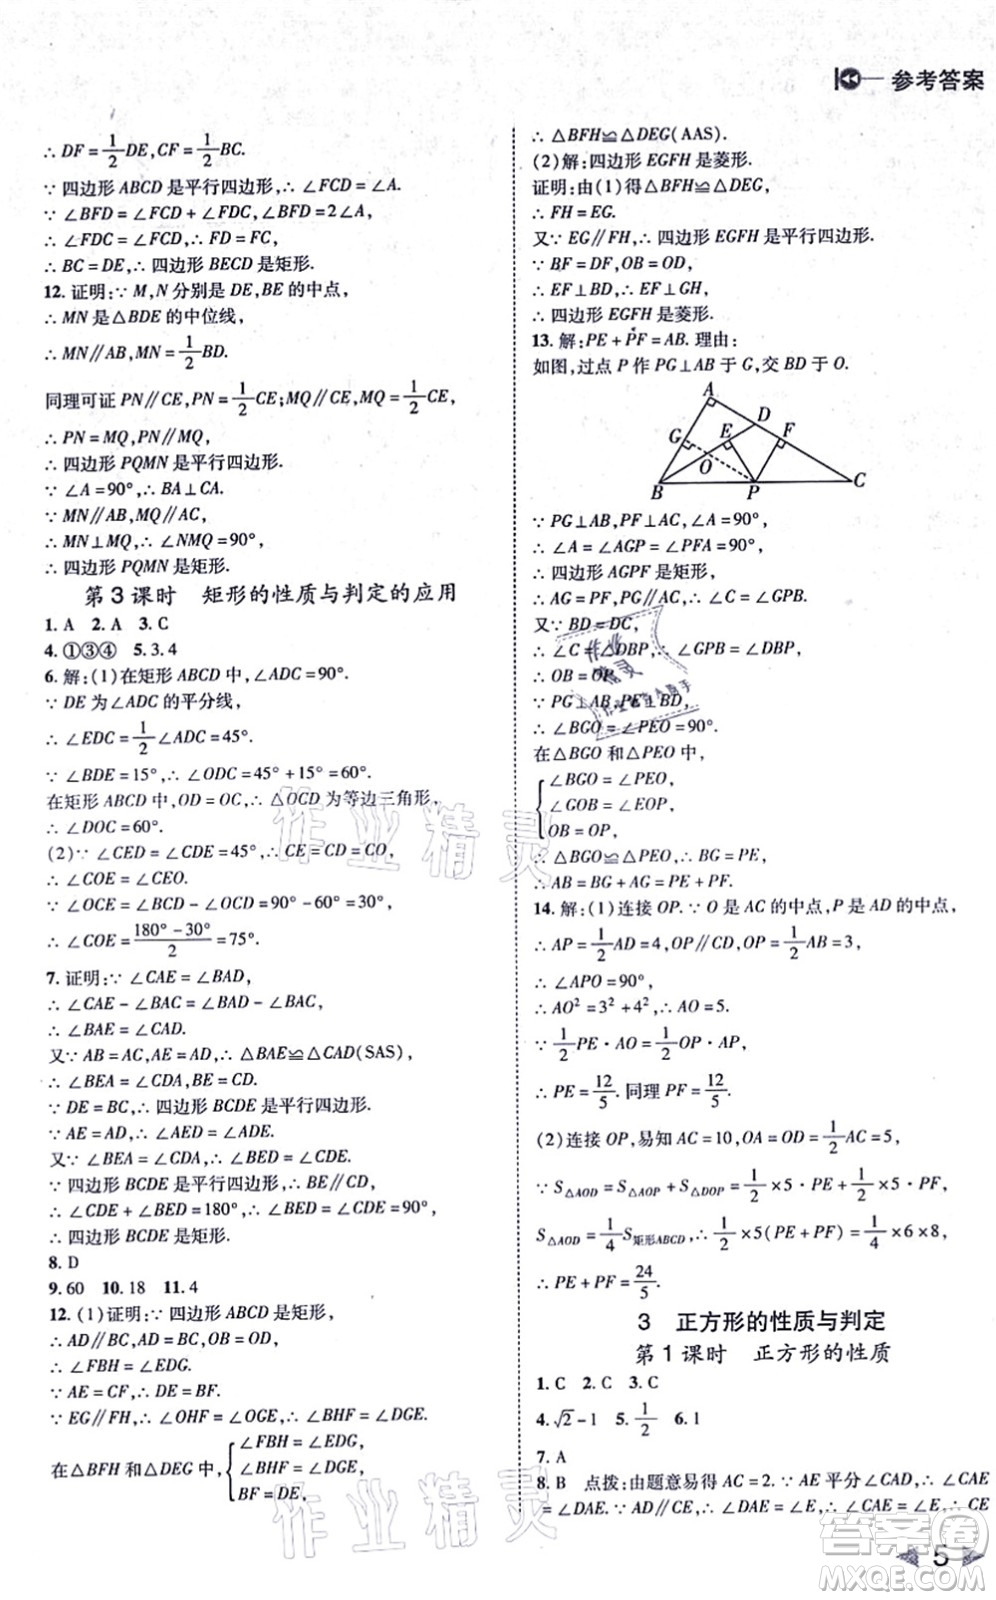 参考答案
∴ DF = 1/2 DE, CF = 1/2 BC.
∵ 四边形 ABCD 是平行四边形, ∴ ∠FDC = ∠A.
∵ ∠BFD = ∠FCD + ∠FDC, ∠BFD = 2∠A,
∴ ∠FDC = ∠FCD, ∴ FD = FC,
∴ BC = DE, ∴ 四边形 BECD 是矩形.
12. 证明: ∵ M, N 分别是 DE, BE 的中点,
∴ MN 是△BDE 的中位线,
∴ MN∥AB, MN = 1/2 BD.
同理可证 PN∥CE, PN = 1/2 CE; MQ∥CE, MQ = 1/2 CE,
∴ PN = MQ, PN∥MQ,
∴ 四边形 PQMN 是平行四边形.
∵ ∠A = 90°, ∴ BA⊥CA.
∵ MN∥AB, MQ∥AC,
∴ MN⊥MQ, ∴ ∠NMQ = 90°,
∴ 四边形 PQMN 是矩形.
第 3 课时 矩形的性质与判定的应用
1. A 2. A 3. C
4. ①③④ 5. 3.4
6. 解: (1) 在矩形 ABCD 中, ∠ADC = 90°.
∵ DE 为∠ADC 的平分线,
∴ ∠EDC = 1/2 ∠ADC = 45°.
∵ ∠BDE = 15°, ∴ ∠ODC = 45° + 15° = 60°.
在矩形 ABCD 中, OD = OC, ∴ △OCD 为等边三角形,
∴ ∠DOC = 60°.
(2) ∵ ∠CED = ∠CDE = 45°, ∴ CE = CD = CO,
∴ ∠COE = ∠CEO.
∵ ∠OCE = ∠BCD - ∠OCD = 90° - 60° = 30°,
∴ ∠COE = (180° - 30°)/2 = 75°.
7. 证明: ∵ ∠CAE = ∠BAD,
∴ ∠CAE - ∠BAC = ∠BAD - ∠BAC,
∴ ∠BAE = ∠CAD.
又∵ AB = AC, AE = AD, ∴ △BAE≌△CAD(SAS),
∴ ∠BEA = ∠CDA, BE = CD.
∵ DE = BC, ∴ 四边形 BCDE 是平行四边形.
∵ AE = AD, ∴ ∠AED = ∠ADE.
又∵ ∠BEA = ∠CDA, ∴ ∠BED = ∠CDE.
∵ 四边形 BCDE 是平行四边形, ∴ BE∥CD,
∴ ∠CDE + ∠BED = 180°, ∴ ∠BED = ∠CDE = 90°,
∴ 四边形 BCDE 是矩形.
8. D
9. 60 10. 18 11. 4
12. (1) 证明: ∵ 四边形 ABCD 是矩形,
∴ AD∥BC, AD = BC, OB = OD,
∴ ∠FBH = ∠EDG.
∵ AE = CF, ∴ DE = BF.
∵ EG∥FH, ∴ ∠OHF = ∠OGE, ∴ ∠BHF = ∠DGE.
在△BFH 和△DEG 中, { ∠FBH = ∠EDG,
∠BHF = ∠DGE,
BF = DE,
∴ △BFH≌△DEG(AAS).
(2) 解: 四边形 EGFH 是菱形.
证明: 由(1)得△BFH≌△DEG,
∴ FH = EG.
又∵ EG∥FH, ∴ 四边形 EGFH 是平行四边形.
∵ BF = DF, OB = OD,
∴ EF⊥BD, ∴ EF⊥GH,
∴ 四边形 EGFH 是菱形.
13. 解: PE + PF = AB. 理由:
如图, 过点 P 作 PG⊥AB 于 G, 交 BD 于 O.
A
D
G E F
O
B P C
∵ PG⊥AB, PF⊥AC, ∠A = 90°,
∴ ∠A = ∠AGP = ∠PFA = 90°,
∴ 四边形 AGPF 是矩形,
∴ AG = PF, PG∥AC, ∴ ∠C = ∠GPB.
又∵ BD = DC,
∴ ∠C = ∠DBP, ∴ ∠GPB = ∠DBP,
∴ OB = OP.
∵ PG⊥AB, PE⊥BD,
∴ ∠BGO = ∠PEO = 90°.
在△BGO 和△PEO 中,
{ ∠BGO = ∠PEO,
∠GOB = ∠EOP,
OB = OP,
∴ △BGO≌△PEO, ∴ BG = PE,
∴ AB = BG + AG = PE + PF.
14. 解: (1) 连接 OP. ∵ O 是 AC 的中点, P 是 AD 的中点,
∴ AP = 1/2 AD = 4, OP∥CD, OP = 1/2 AB = 3,
∴ ∠APO = 90°,
∴ AO² = 3² + 4², ∴ AO = 5.
∵ 1/2 PE · AO = 1/2 OP · AP,
∴ PE = 12/5. 同理 PF = 12/5.
(2) 连接 OP, 易知 AC = 10, OA = OD = 1/2 AC = 5,
∵ S△AOD = S△AOP + S△DOP = 1/2 ×5 · PE + 1/2 ×5 · PF,
S△AOD = 1/4 S矩形ABCD, ∴ 1/2 ×5(PE + PF) = 1/4 ×6×8,
∴ PE + PF = 24/5.
3 正方形的性质与判定
第 1 课时 正方形的性质
1. C 2. C 3. C
4. √2 - 1 5. 1/2 6. 1
7. A
8. B 点拨: 由题意易得 AC = 2. ∵ AE 平分∠CAD, ∴ ∠CAE
= ∠DAE. ∵ AD∥CE, ∴ ∠DAE = ∠E, ∴ ∠CAE = ∠E, ∴ CE
5
作业精灵
作业精灵
答案圈
MXQE.COM